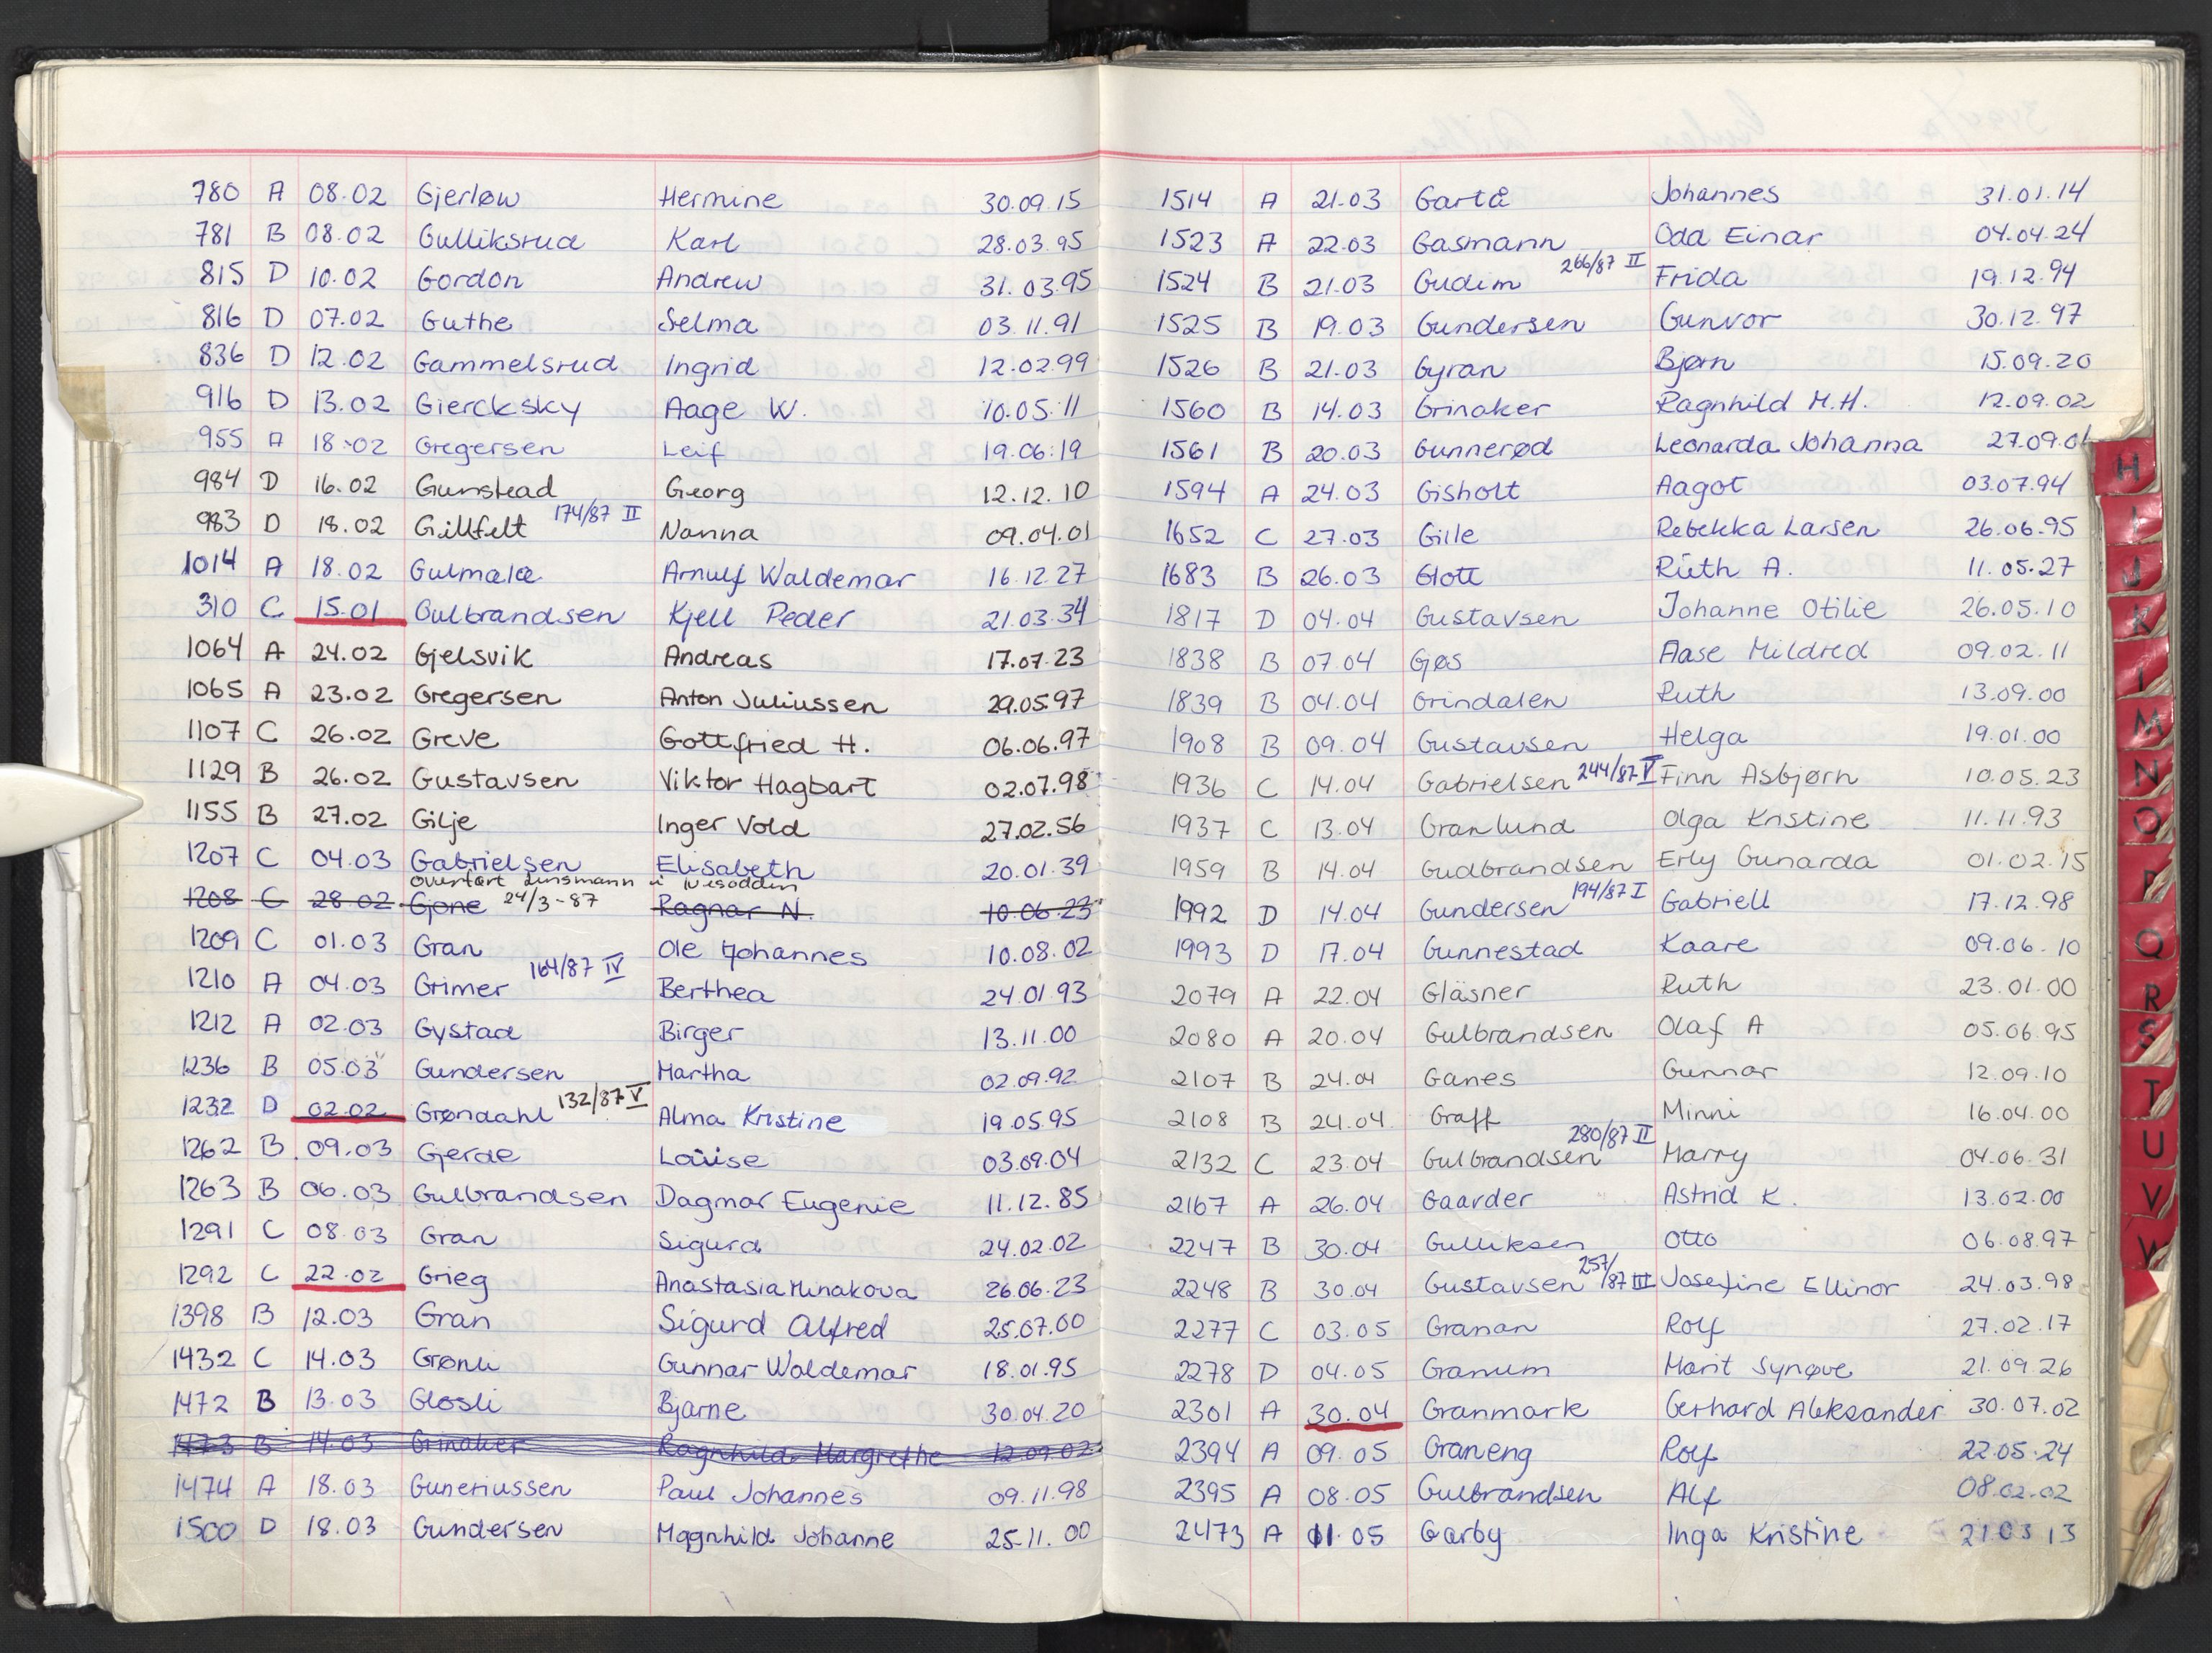 780 A 08.02 Gjerløw Hermine 30.09.15
781 B 08.02 Gulliksrud Karl 28.03.95
815 D 10.02 Gordon Andrew 31.03.95
816 D 07.02 Guthe Selma 03.11.91
836 D 12.02 Gammelsrud Ingrid 12.02.99
916 D 13.02 Giercksky Aage W. 10.05.11
955 A 18.02 Gregersen Leif 19.06.19
984 D 16.02 Gunstead Georg 12.12.10
983 D 18.02 Gillfelt 174/87 II Nanna 09.04.01
1014 A 18.02 Gulmala Arnulf Waldemar 16.12.27
310 C 15.01 Gulbrandsen Kjell Peder 21.03.34
1064 A 24.02 Gjelsvik Andreas 17.07.23
1065 A 23.02 Gregersen Anton Juliussen 29.05.97
1107 C 26.02 Greve Gottfried H. 06.06.97
1129 B 26.02 Gustavsen Viktor Hagbart 02.07.98
1155 B 27.02 Gilje Inger Vold 27.02.56
1207 C 04.03 Gabrielsen Elisabeth 20.01.39
overført lensmann i Nesodden
1208 C 28.02 Gjone 24/3-87 Ragnar N. 10.06.23
1209 C 01.03 Gran Ole Johannes 10.08.02
1210 A 04.03 Grimer 164/87 IV Berthea 24.01.93
1212 A 02.03 Gystad Birger 13.11.00
1236 B 05.03 Gundersen Martha 02.09.92
1232 D 02.02 Grøndahl 132/87 V Alma Kristine 19.05.95
1262 B 09.03 Gjerde Louise 03.09.04
1263 B 06.03 Gulbrandsen Dagmar Eugenie 11.12.85
1291 C 08.03 Gran Sigurd 24.02.02
1292 C 22.02 Grieg Anastasia Minakova 26.06.23
1398 B 12.03 Gran Sigurd Alfred 25.07.00
1432 C 14.03 Grønli Gunnar Waldemar 18.01.95
1472 B 13.03 Glosli Bjarne 30.04.20
1473 B 14.03 Grinaker Ragnhild Margrethe 12.09.02
1474 A 18.03 Guneriussen Paul Johannes 09.11.98
1500 D 18.03 Gundersen Magnhild Johanne 25.11.00
1514 A 21.03 Gartå Johannes 31.01.14
1523 A 22.03 Gasmann Oda Einar 04.04.24
1524 B 21.03 Gudim 266/87 II Frida 19.12.94
1525 B 19.03 Gundersen Gunvor 30.12.97
1526 B 21.03 Gyran Bjørn 15.09.20
1560 B 14.03 Grinaker Ragnhild M.H. 12.09.02
1561 B 20.03 Gunnerød Leonarda Johanna 27.09.01
1594 A 24.03 Gisholt Aagot 03.07.94
1652 C 27.03 Gille Rebekka Larsen 26.06.95
1683 B 26.03 Glott Ruth A. 11.05.27
1817 D 04.04 Gustavsen Johanne Otilie 26.05.10
1838 B 07.04 Gjøs Aase Mildred 09.02.11
1839 B 04.04 Grindalen Ruth 13.09.00
1908 B 09.04 Gustavsen Helga 19.01.00
1936 C 14.04 Gabrielsen 244/87 V Finn Asbjørn 10.05.23
1937 C 13.04 Granlund Olga Kristine 11.11.93
1959 B 14.04 Gudbrandsen Erly Gunarda 01.02.15
1992 D 14.04 Gundersen 194/87 I Gabriell 17.12.98
1993 D 17.04 Gunnestad Kaare 09.06.10
2079 A 22.04 Gläsner Ruth 23.01.00
2080 A 20.04 Gulbrandsen Olaf A 05.06.95
2107 B 24.04 Ganes Gunnar 12.09.10
2108 B 24.04 Graff Minni 16.04.00
2132 C 23.04 Gulbrandsen 280/87 II Harry 04.06.31
2167 A 26.04 Gaarder Astrid K. 13.02.00
2247 B 30.04 Gulliksen Otto 06.08.97
2248 B 30.04 Gustavsen 257/87 III Josefine Ellinor 24.03.98
2277 C 03.05 Granan Rolf 27.02.17
2278 D 04.05 Granum Marit Synøve 21.09.26
2301 A 30.04 Granmark Gerhard Aleksander 30.07.02
2394 A 09.05 Graneng Rolf 22.05.24
2395 A 08.05 Gulbrandsen Alf 08.02.02
2473 A 11.05 Garby Inga Kristine 21.03.13
H
I
J
K
L
M
N
O
P
Q
R
S
T
U
V
W